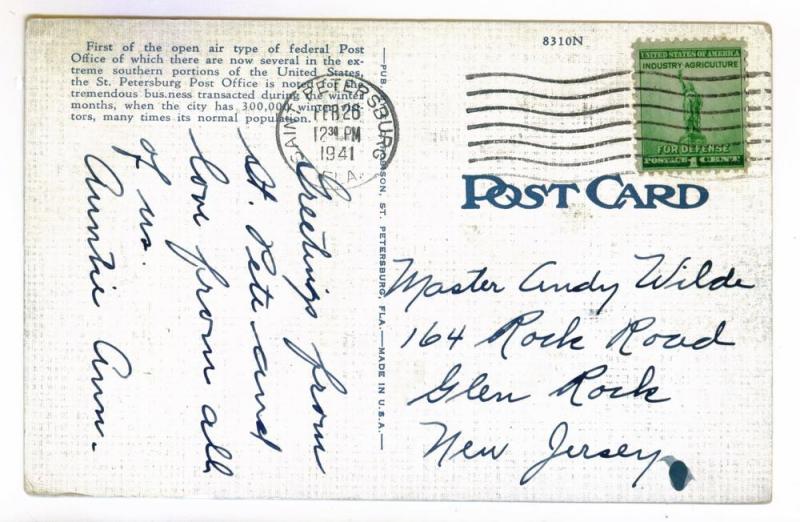 First of the open air type of federal Post
Office of which there are now several in the ex-
treme southern portions of the United States,
the St. Petersburg Post Office is noted for the
tremendous bus.ness transacted during the winter
months, when the city has 300,000 winter visi-
tors, many times its normal population.
8310N
UNITED STATES OF AMERICA
INDUSTRY·AGRICULTURE
FOR DEFENSE
POSTAGE 1 CENT
SAINT PETERSBURG
FEB 26
12 30 PM
1941
FLA.
POST CARD
PUB. ST. PETERSBURG, FLA.—MADE IN U.S.A.
Greetings from
St. Pete and
love from all
of us.
Auntie Ann.
Master Andy Wilde
164 Rock Road
Glen Rock
New Jersey